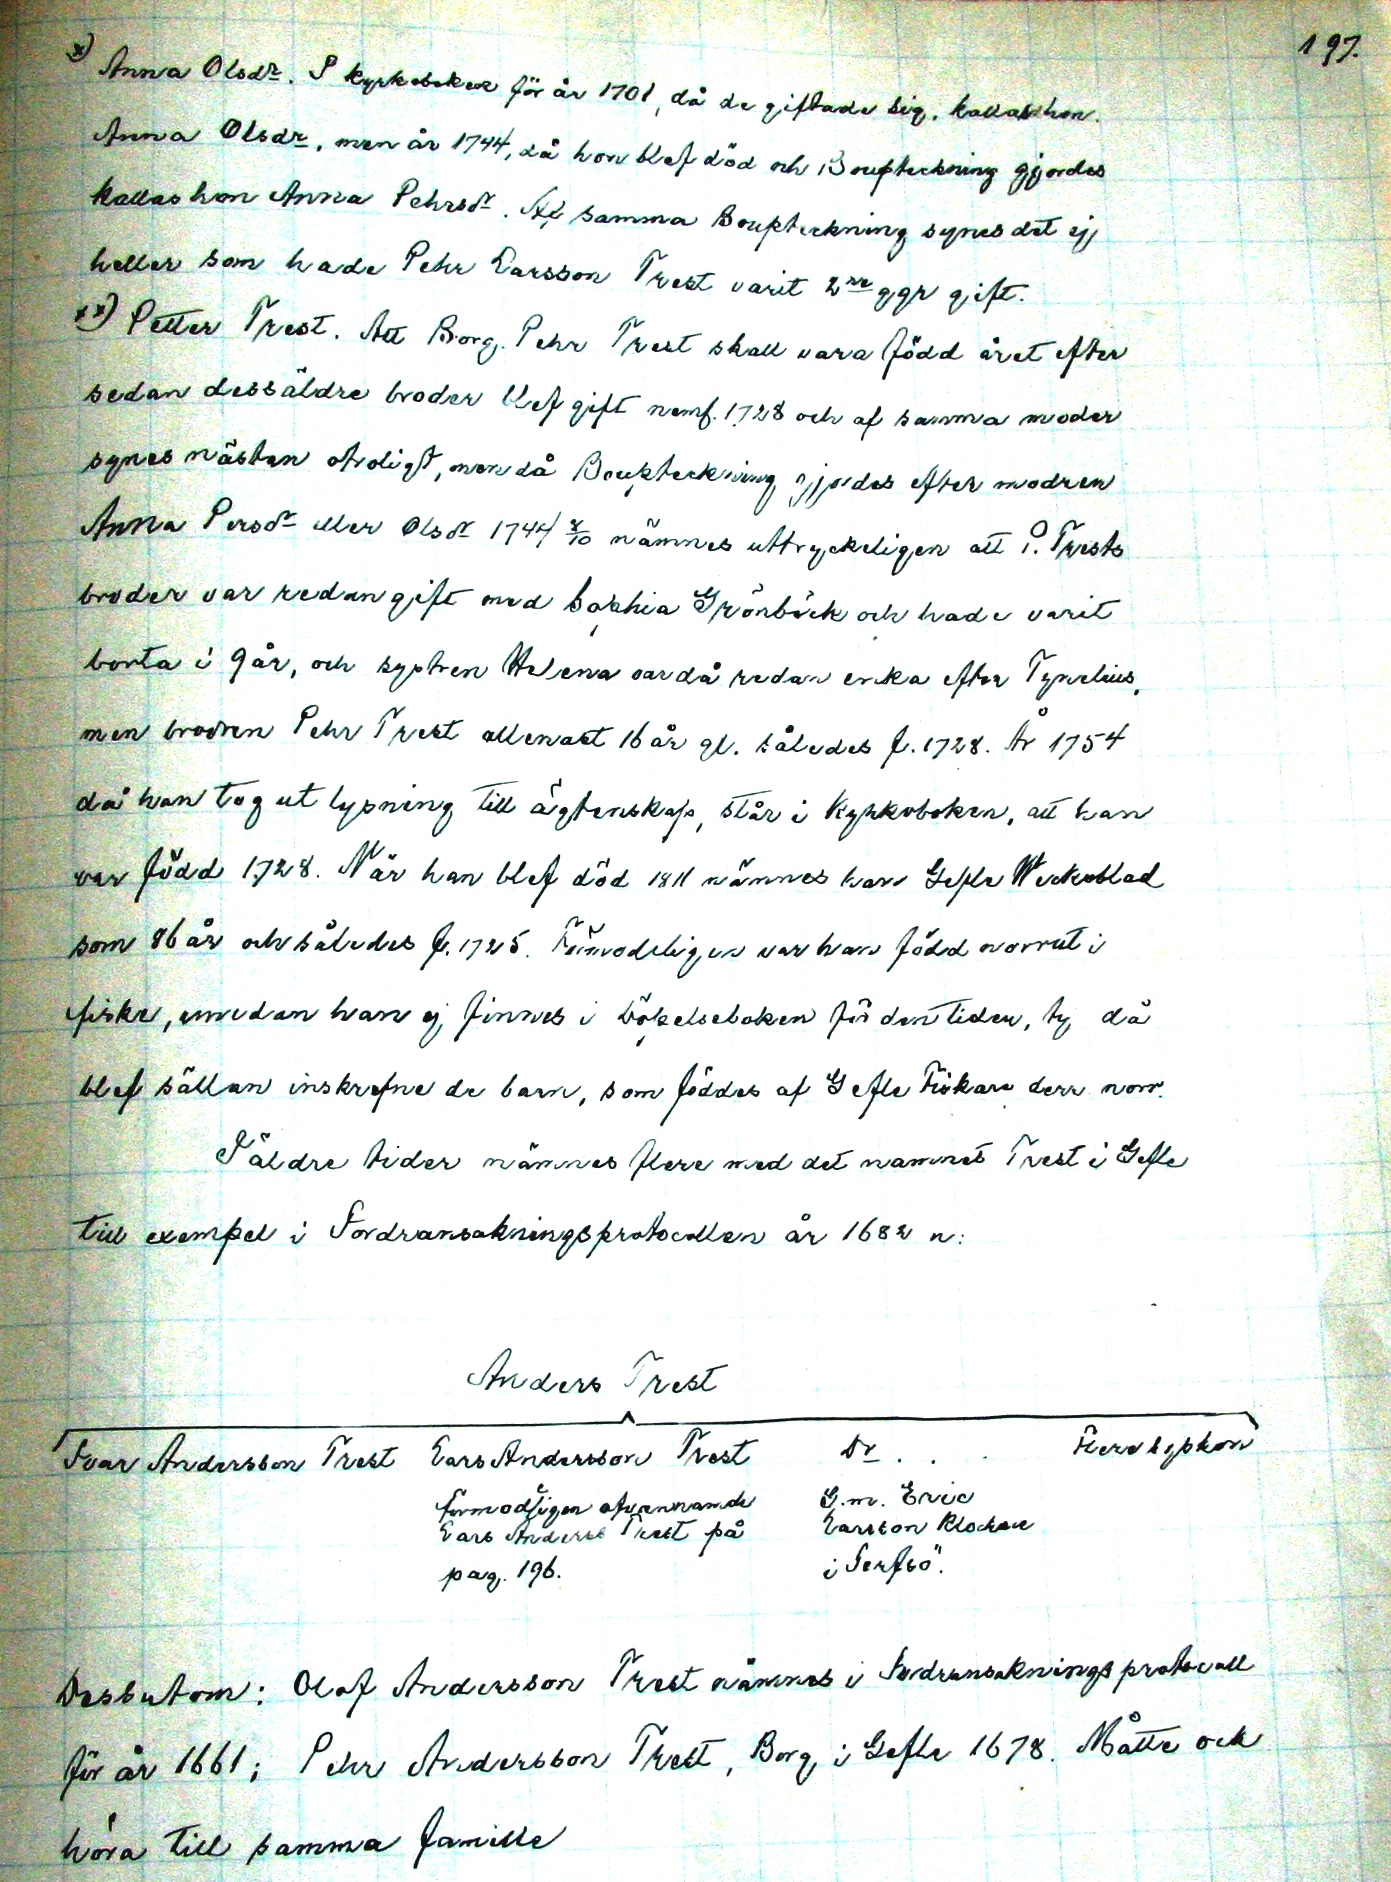 197.
x) Anna Olsdr. I kyrkoboken för år 1701, då de giftade sig, kallas hon
Anna Olsdr, men år 1744, då hon blef död och Boupteckning gjordes
kallas hon Anna Pehrsdr. Af samma Boupteckning synes det ej
heller som hade Pehr Larsson Trest varit 2ne ggr gift.
xx) Petter Trest. Att Borg. Pehr Trest skall vara född året efter
sedan dess äldre broder blef gift neml. 1728 och af samma moder
synes nästan otroligt, men då Boupteckning gjordes efter modren
Anna Persdr eller Olsdr 1744 8/10 nämnes uttryckeligen att O. Trests
broder var redan gift med Sophia Grönbäck och hade varit
borta i 9 år, och systren Helena var då redan enka efter Tynelius,
men brodren Pehr Trest allenast 16 år gl. således f. 1728. År 1754
då han tog ut lysning till ägtenskap, står i Kyrkoboken, att han
var född 1728. När han blef död 1811 nämnes han i Gefle Weckoblad
som 86 år och således f. 1725. Förmodeligen var han född norrut i
fiske, emedan han ej finnes i böpelseboken för den tiden, ty då
blef sällan inskrefne de barn, som föddes af Gefle Fiskare derr norr.
I äldre tider nämnes flere med det namnet Trest i Gefle
till exempel i Fordransakningsprotocollen år 1682 n:
Anders Trest
Ivar Andersson Trest Lars Andersson Trest Dr . . . Flere syskon
förmodligen ofvannämde G.m. Eric
Lars Anders Trest på Larsson Klockare
pag. 196. i Serfsö.
Dessutom: Olof Andersson Trest nämnes i Fordransakningsprotocoll
för år 1661; Pehr Andersson Trest, Borg. i Gefle 1678. Måtte ock
höra till samma famille